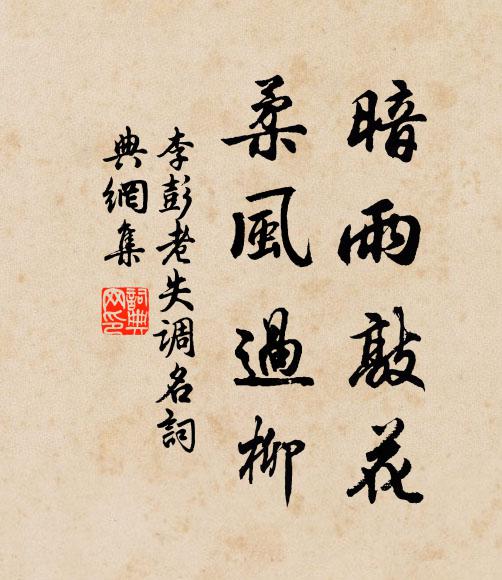 暗雨敲花
柔風過柳
李彭老失调名詞
典網集
詞典
网印